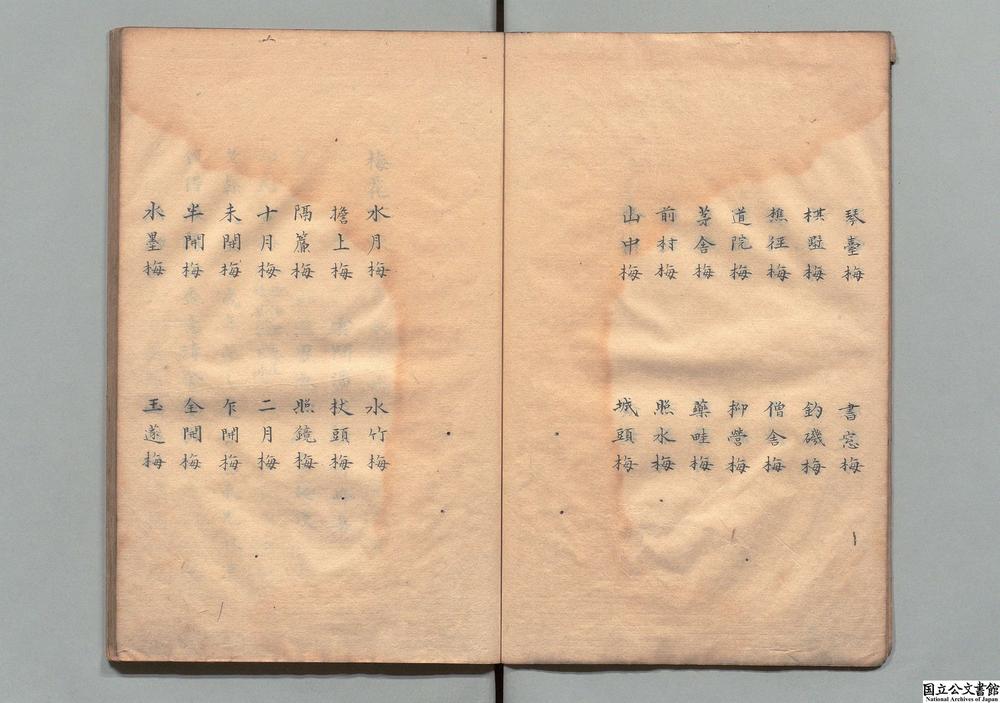 琴臺梅　書窓梅
棋墅梅　釣磯梅
樵徑梅　僧舍梅
道院梅　柳營梅
茅舍梅　藥畦梅
前村梅　照水梅
山中梅　城頭梅
水月梅　水竹梅
擔上梅　杖頭梅
隔簾梅　照鏡梅
十月梅　二月梅
未開梅　乍開梅
半開梅　全開梅
水墨梅　玉邃梅
国立公文書館
National Archives of Japan